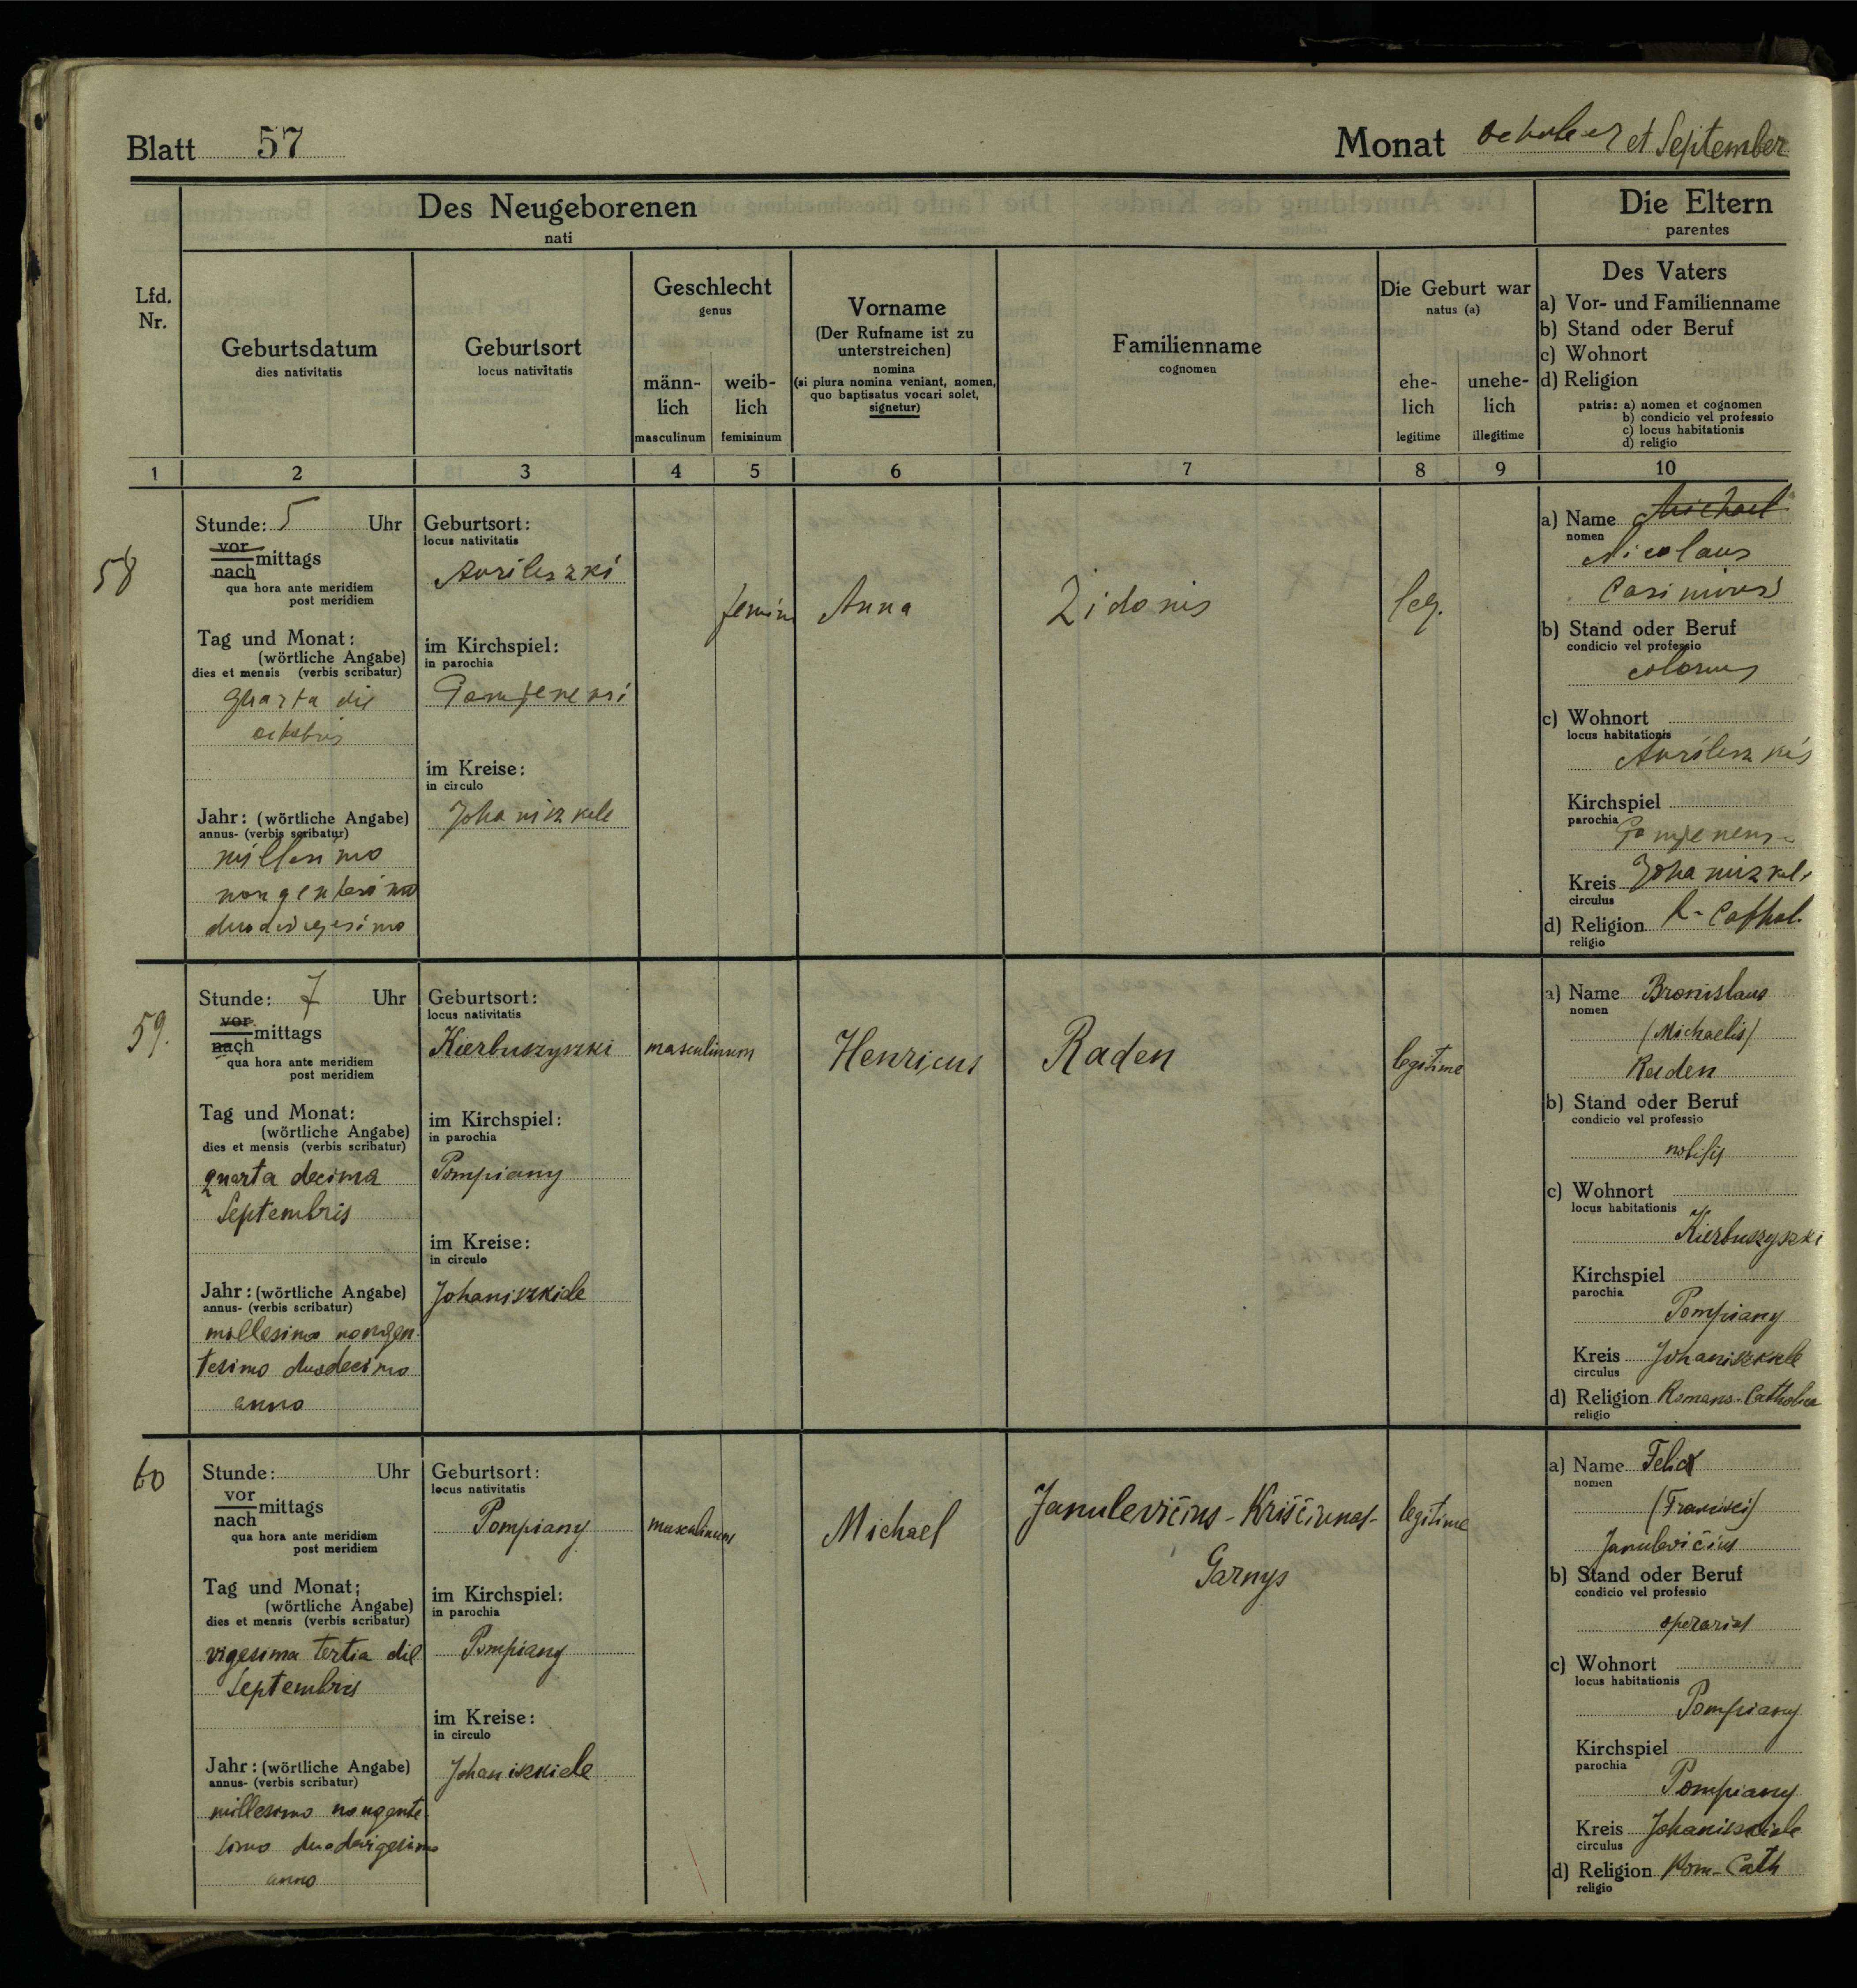 Blatt 57
Monat October et September
Des Neugeborenen
nati
Die Eltern
parentes
Lfd.
Nr.
Geburtsdatum
dies nativitatis
Geburtsort
locus nativitatis
Geschlecht
genus
männ-
lich
masculinum
weib-
lich
femininum
Vorname
(Der Rufname ist zu
unterstreichen)
nomina
(si plura nomina veniant, nomen,
quo baptisatus vocari solet,
signetur)
Familienname
cognomen
Die Geburt war
natus (a)
ehe-
lich
legitime
unehe-
lich
illegitime
Des Vaters
a) Vor- und Familienname
b) Stand oder Beruf
c) Wohnort
d) Religion
patris: a) nomen et cognomen
b) condicio vel professio
c) locus habitationis
d) religio
1 2 3 4 5 6 7 8 9 10
58
Stunde: 5 Uhr
vor
nach
mittags
qua hora ante meridiem
post meridiem
Tag und Monat:
(wörtliche Angabe)
dies et mensis (verbis scribatur)
quarta die
octobris
Jahr: (wörtliche Angabe)
annus- (verbis scribatur)
millesimo
nongentesimo
duodevigesimo
Geburtsort:
locus nativitatis
im Kirchspiel:
in parochia
im Kreise:
in circulo
Johaniszkele
femin
Anna
Zidonis
leg.
a) Name Michael
nomen
Nicolaus
Casimiri
b) Stand oder Beruf
condicio vel professio
colonus
c) Wohnort
locus habitationis
Kirchspiel
parochia
Kreis
circulus
d) Religion R-Cathol.
religio
59.
Stunde: 7 Uhr
vor
nach
mittags
qua hora ante meridiem
post meridiem
Tag und Monat:
(wörtliche Angabe)
dies et mensis (verbis scribatur)
quarta decima
Septembris
Jahr: (wörtliche Angabe)
annus- (verbis scribatur)
millesimo nongen-
tesimo duodecimo
anno
Geburtsort:
locus nativitatis
Kierbuszyszki
im Kirchspiel:
in parochia
Pompiany
im Kreise:
in circulo
Johaniszkiele
masculinum
Henricus
Raden
legitime
a) Name Bronislaus
nomen
(Michaelis)
Raden
b) Stand oder Beruf
condicio vel professio
nobilis
c) Wohnort
locus habitationis
Kierbuszyszki
Kirchspiel
parochia
Pompiany
Kreis Johaniszkiele
circulus
d) Religion Romano-Catholica
religio
60
Stunde: Uhr
vor
nach
mittags
qua hora ante meridiem
post meridiem
Tag und Monat:
(wörtliche Angabe)
dies et mensis (verbis scribatur)
vigesima tertia die
Septembris
Jahr: (wörtliche Angabe)
annus- (verbis scribatur)
millesimo nongente-
simo duodevigesimo
anno
Geburtsort:
locus nativitatis
Pompiany
im Kirchspiel:
in parochia
Pompiany
im Kreise:
in circulo
Johaniszkiele
masculinum
Michael
Janulevičius-Kriščiunas-
Garnys
legitime
a) Name Felix
nomen
(Francisci)
Janulevičius
b) Stand oder Beruf
condicio vel professio
operarius
c) Wohnort
locus habitationis
Pompiany
Kirchspiel
parochia
Pompiany
Kreis Johaniszkiele
circulus
d) Religion Rom-Cath
religio